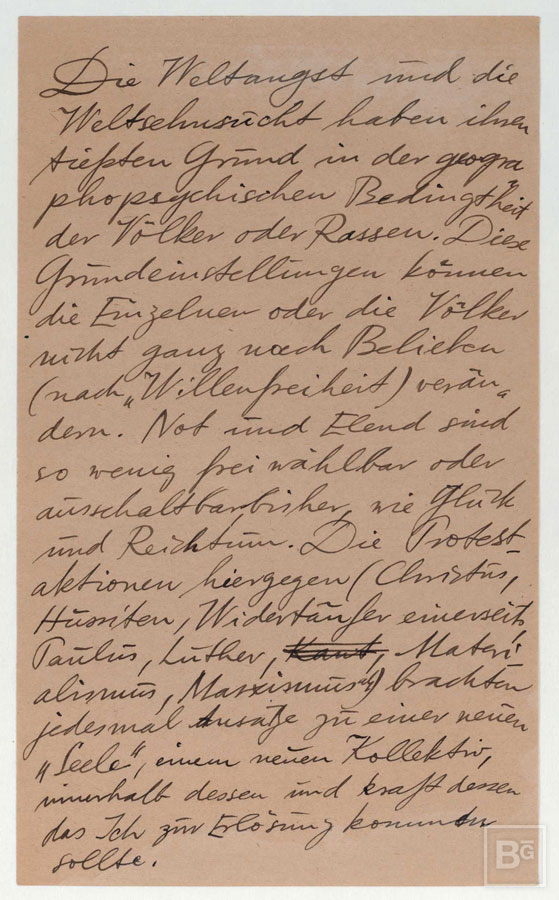 Die Weltangst und die
Weltsehnsucht haben ihren
tiefsten Grund in der geogra
phopsychischen Bedingtheit
der Völker oder Rassen. Diese
Grundeinstellungen können
die Einzelnen oder die Völker
nicht ganz nach Belieben
(nach „Willenfreiheit) verän„
dern. Not und Elend sind
so wenig frei wählbar oder
ausschaltbar bisher, wie Glück
und Reichtum. Die Protest
aktionen hiergegen (Christus,
Hussiten, Widertäufer einerseits,
Paulus, Luther, Kant, Materi
alismus, Marxismus) brachten
jedesmal Ansätze zu einer neuen
„Seele", einem neuen Kollektiv,
innerhalb dessen und kraft dessen
das Ich zur Erlösung kommen
sollte.
BG